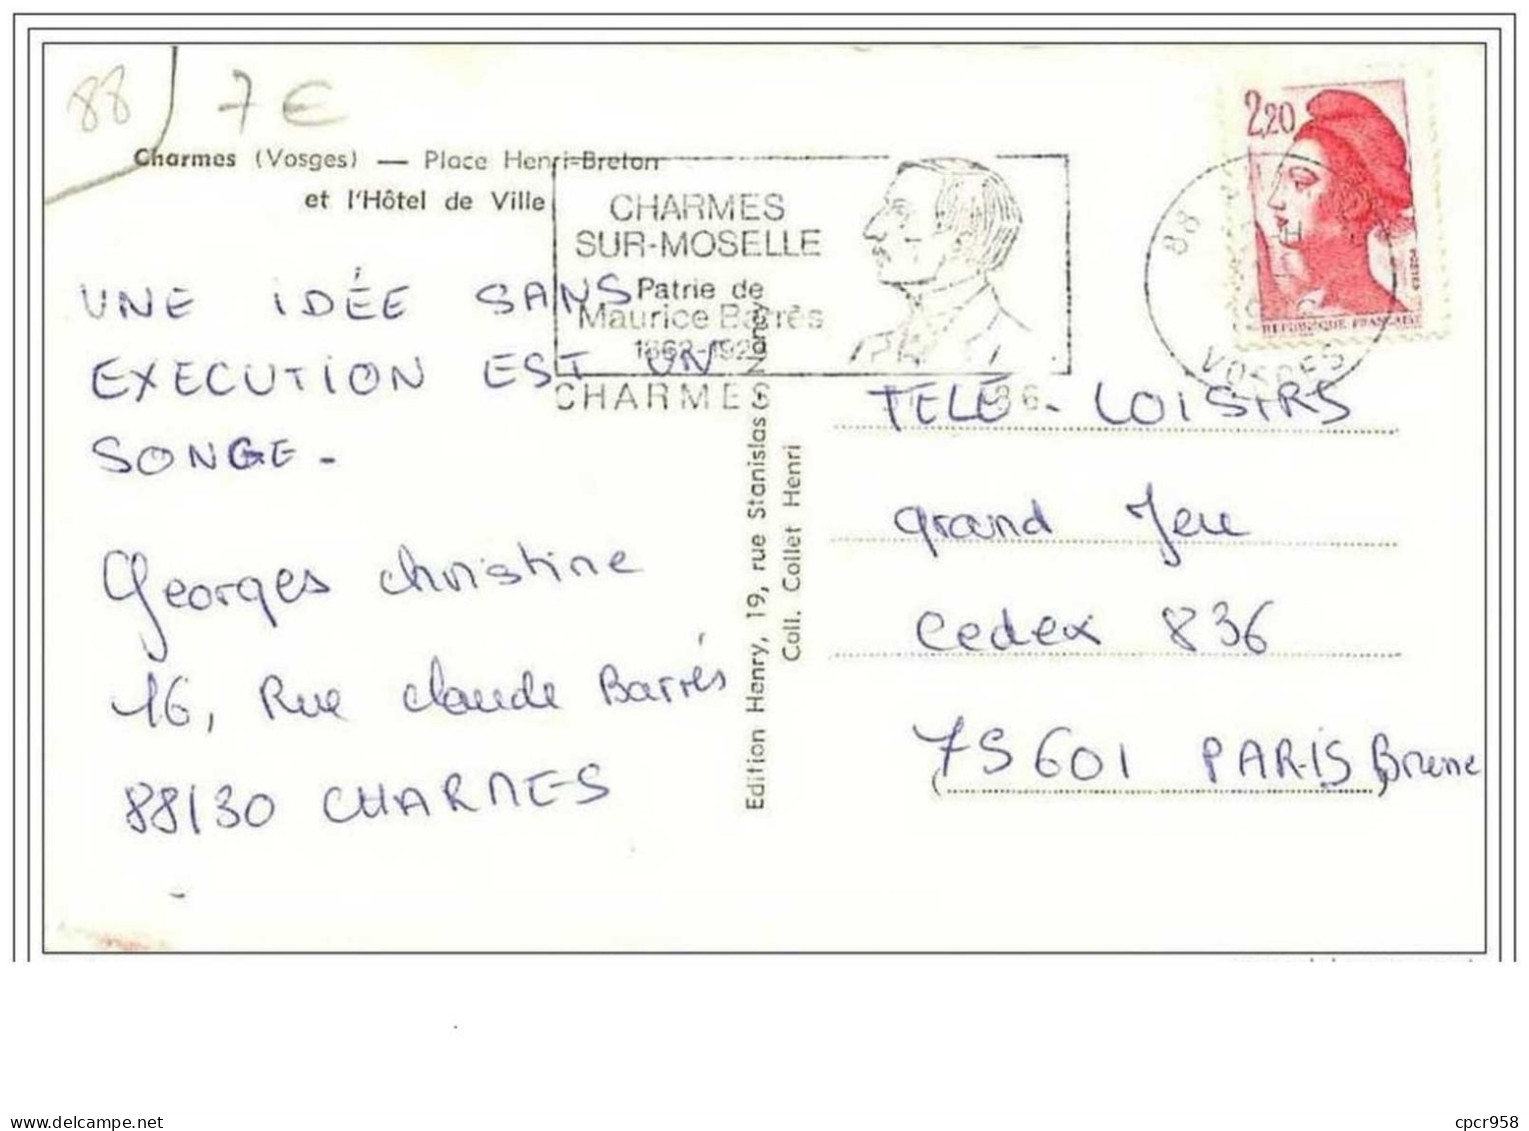 88 7 €
Charmes (Vosges) — Place Henri-Breton
et l'Hôtel de Ville
CHARMES
SUR-MOSELLE
Patrie de
Maurice Barrès
CHARMES
2,20
REPUBLIQUE FRANÇAISE
88
VOSGES
86
UNE IDÉE SANS
EXECUTION EST UN
SONGE-
Georges christine
16, Rue claude Barrés
88130 CHARMES
Edition Henry, 19, rue Stanislas, Nancy
Coll. Collet Henri
TELE - LOISIRS
grand Jeu
Cedex 836
75601 PARIS Brune
cpcr958